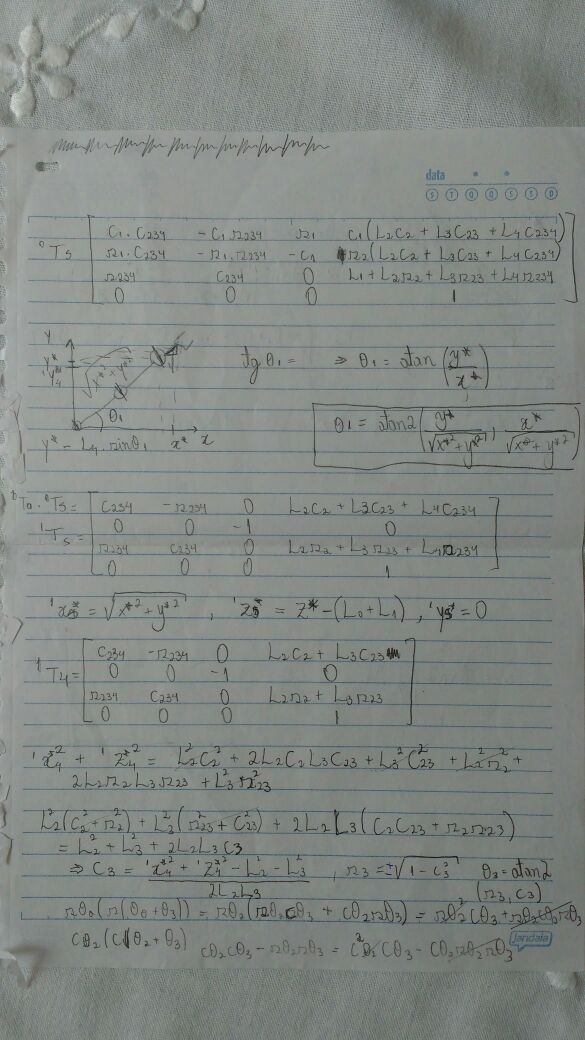 data
S T Q Q S S D
⁰T₅ [ C₁.C₂₃₄  -C₁s₂₃₄  s₁  C₁(L₂C₂ + L₃C₂₃ + L₄C₂₃₄)
s₁.C₂₃₄  -s₁.s₂₃₄  -C₁  s₂(L₂C₂ + L₃C₂₃ + L₄C₂₃₄)
s₂₃₄  C₂₃₄  0  L₁ + L₂s₂ + L₃s₂₃ + L₄s₂₃₄
0  0  0  1 ]
y
y*
√(x*² + y*²)
θ₁
x*  x
y* - L₄.sinθ₁
tg θ₁ =  ⇒ θ₁ = atan (y*/x*)
θ₁ = atan2 (y*/√(x*²+y*²), x*/√(x*²+y*²))
¹T₀.⁰T₅ = [ C₂₃₄  -s₂₃₄  0  L₂C₂ + L₃C₂₃ + L₄C₂₃₄
¹T₅ =  0  0  -1  0
s₂₃₄  C₂₃₄  0  L₂s₂ + L₃s₂₃ + L₄s₂₃₄
0  0  0  1 ]
¹x₅* = √(x*² + y*²) , ¹z₅* = z* - (L₀ + L₁) , ¹y₅* = 0
¹T₄ = [ C₂₃₄  -s₂₃₄  0  L₂C₂ + L₃C₂₃
0  0  -1  0
s₂₃₄  C₂₃₄  0  L₂s₂ + L₃s₂₃
0  0  0  1 ]
¹x₄*² + ¹z₄*² = L₂²C₂² + 2L₂C₂L₃C₂₃ + L₃²C₂₃² + L₂²s₂² +
2L₂s₂L₃s₂₃ + L₃²s₂₃²
L₂²(C₂² + s₂²) + L₃²(s₂₃² + C₂₃²) + 2L₂L₃(C₂C₂₃ + s₂s₂₃)
= L₂² + L₃² + 2L₂L₃C₃
⇒ C₃ = (¹x₄*² + ¹z₄*² - L₂² - L₃²)/(2L₂L₃) , s₃ = ±√(1 - C₃²)  θ₃ = atan2 (s₃, C₃)
sθ₂(s(θ₂ + θ₃)) = sθ₂(sθ₂cθ₃ + cθ₂sθ₃) = sθ₂²cθ₃ + sθ₂cθ₂sθ₃
cθ₂(c(θ₂ + θ₃)  cθ₂cθ₃ - sθ₂sθ₃ = c²θ₂cθ₃ - cθ₂sθ₂sθ₃
jandaia